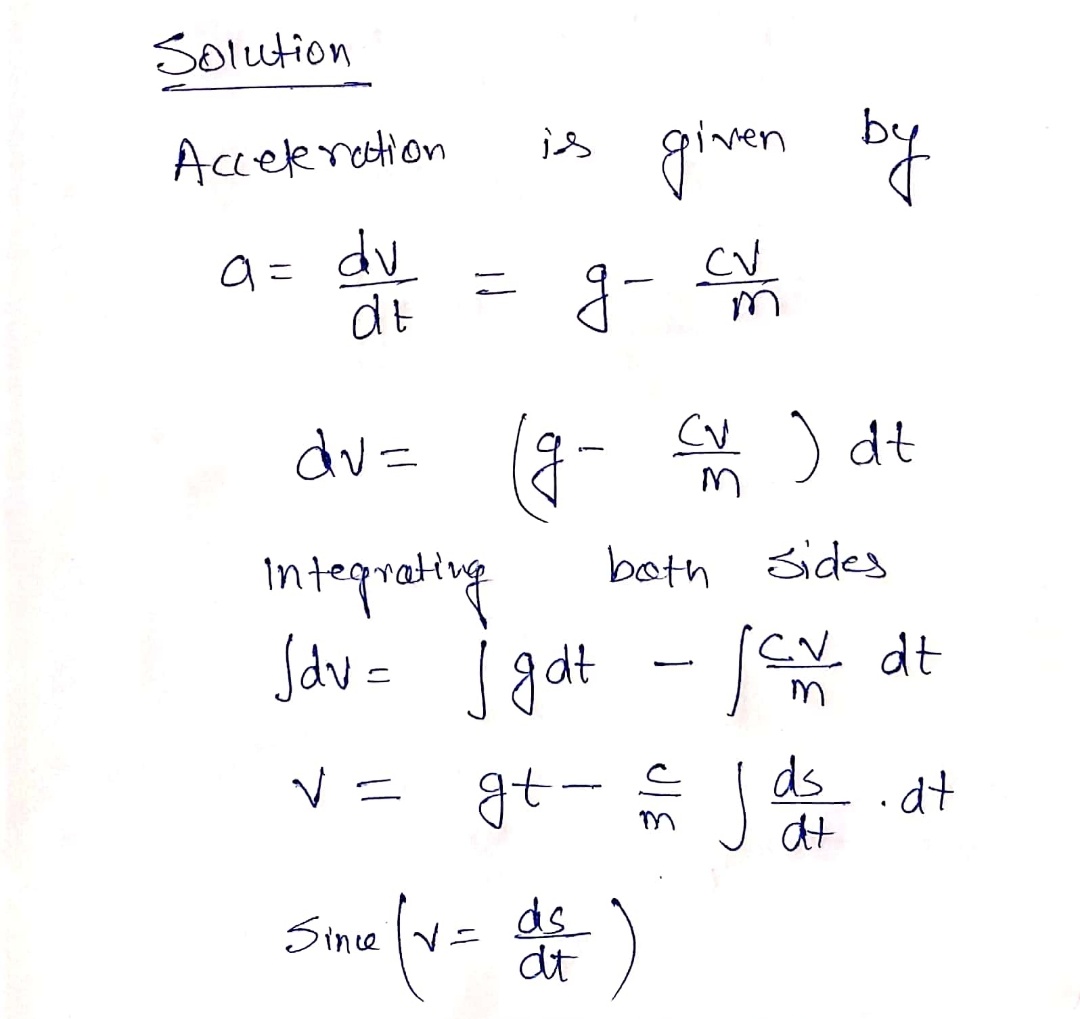 Solution
Acceleration is given by
a = dv/dt = g - cv/m
dv = (g - cv/m) dt
Integrating both sides
∫dv = ∫g dt - ∫cv/m dt
v = gt - c/m ∫ds/dt . dt
Since (v = ds/dt)